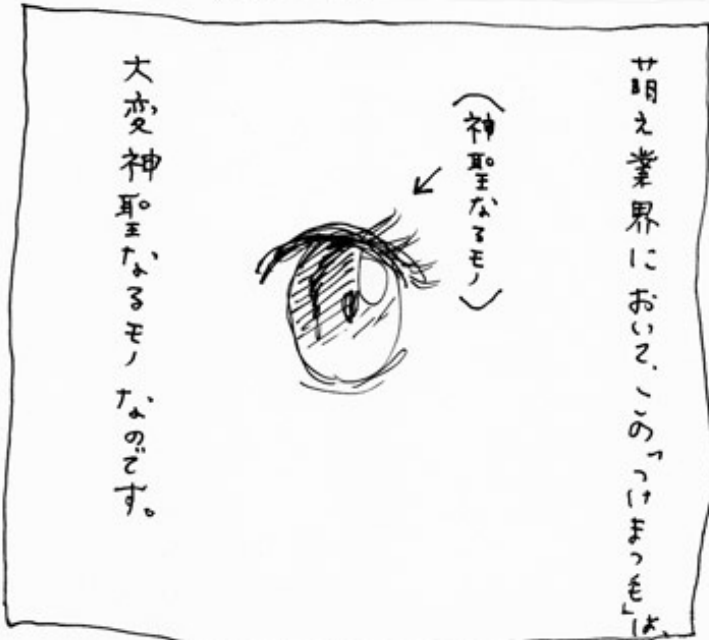 萌え業界において、この「つけまつ毛」は、
(神聖なるモノ)
大変神聖なるモノなのです。